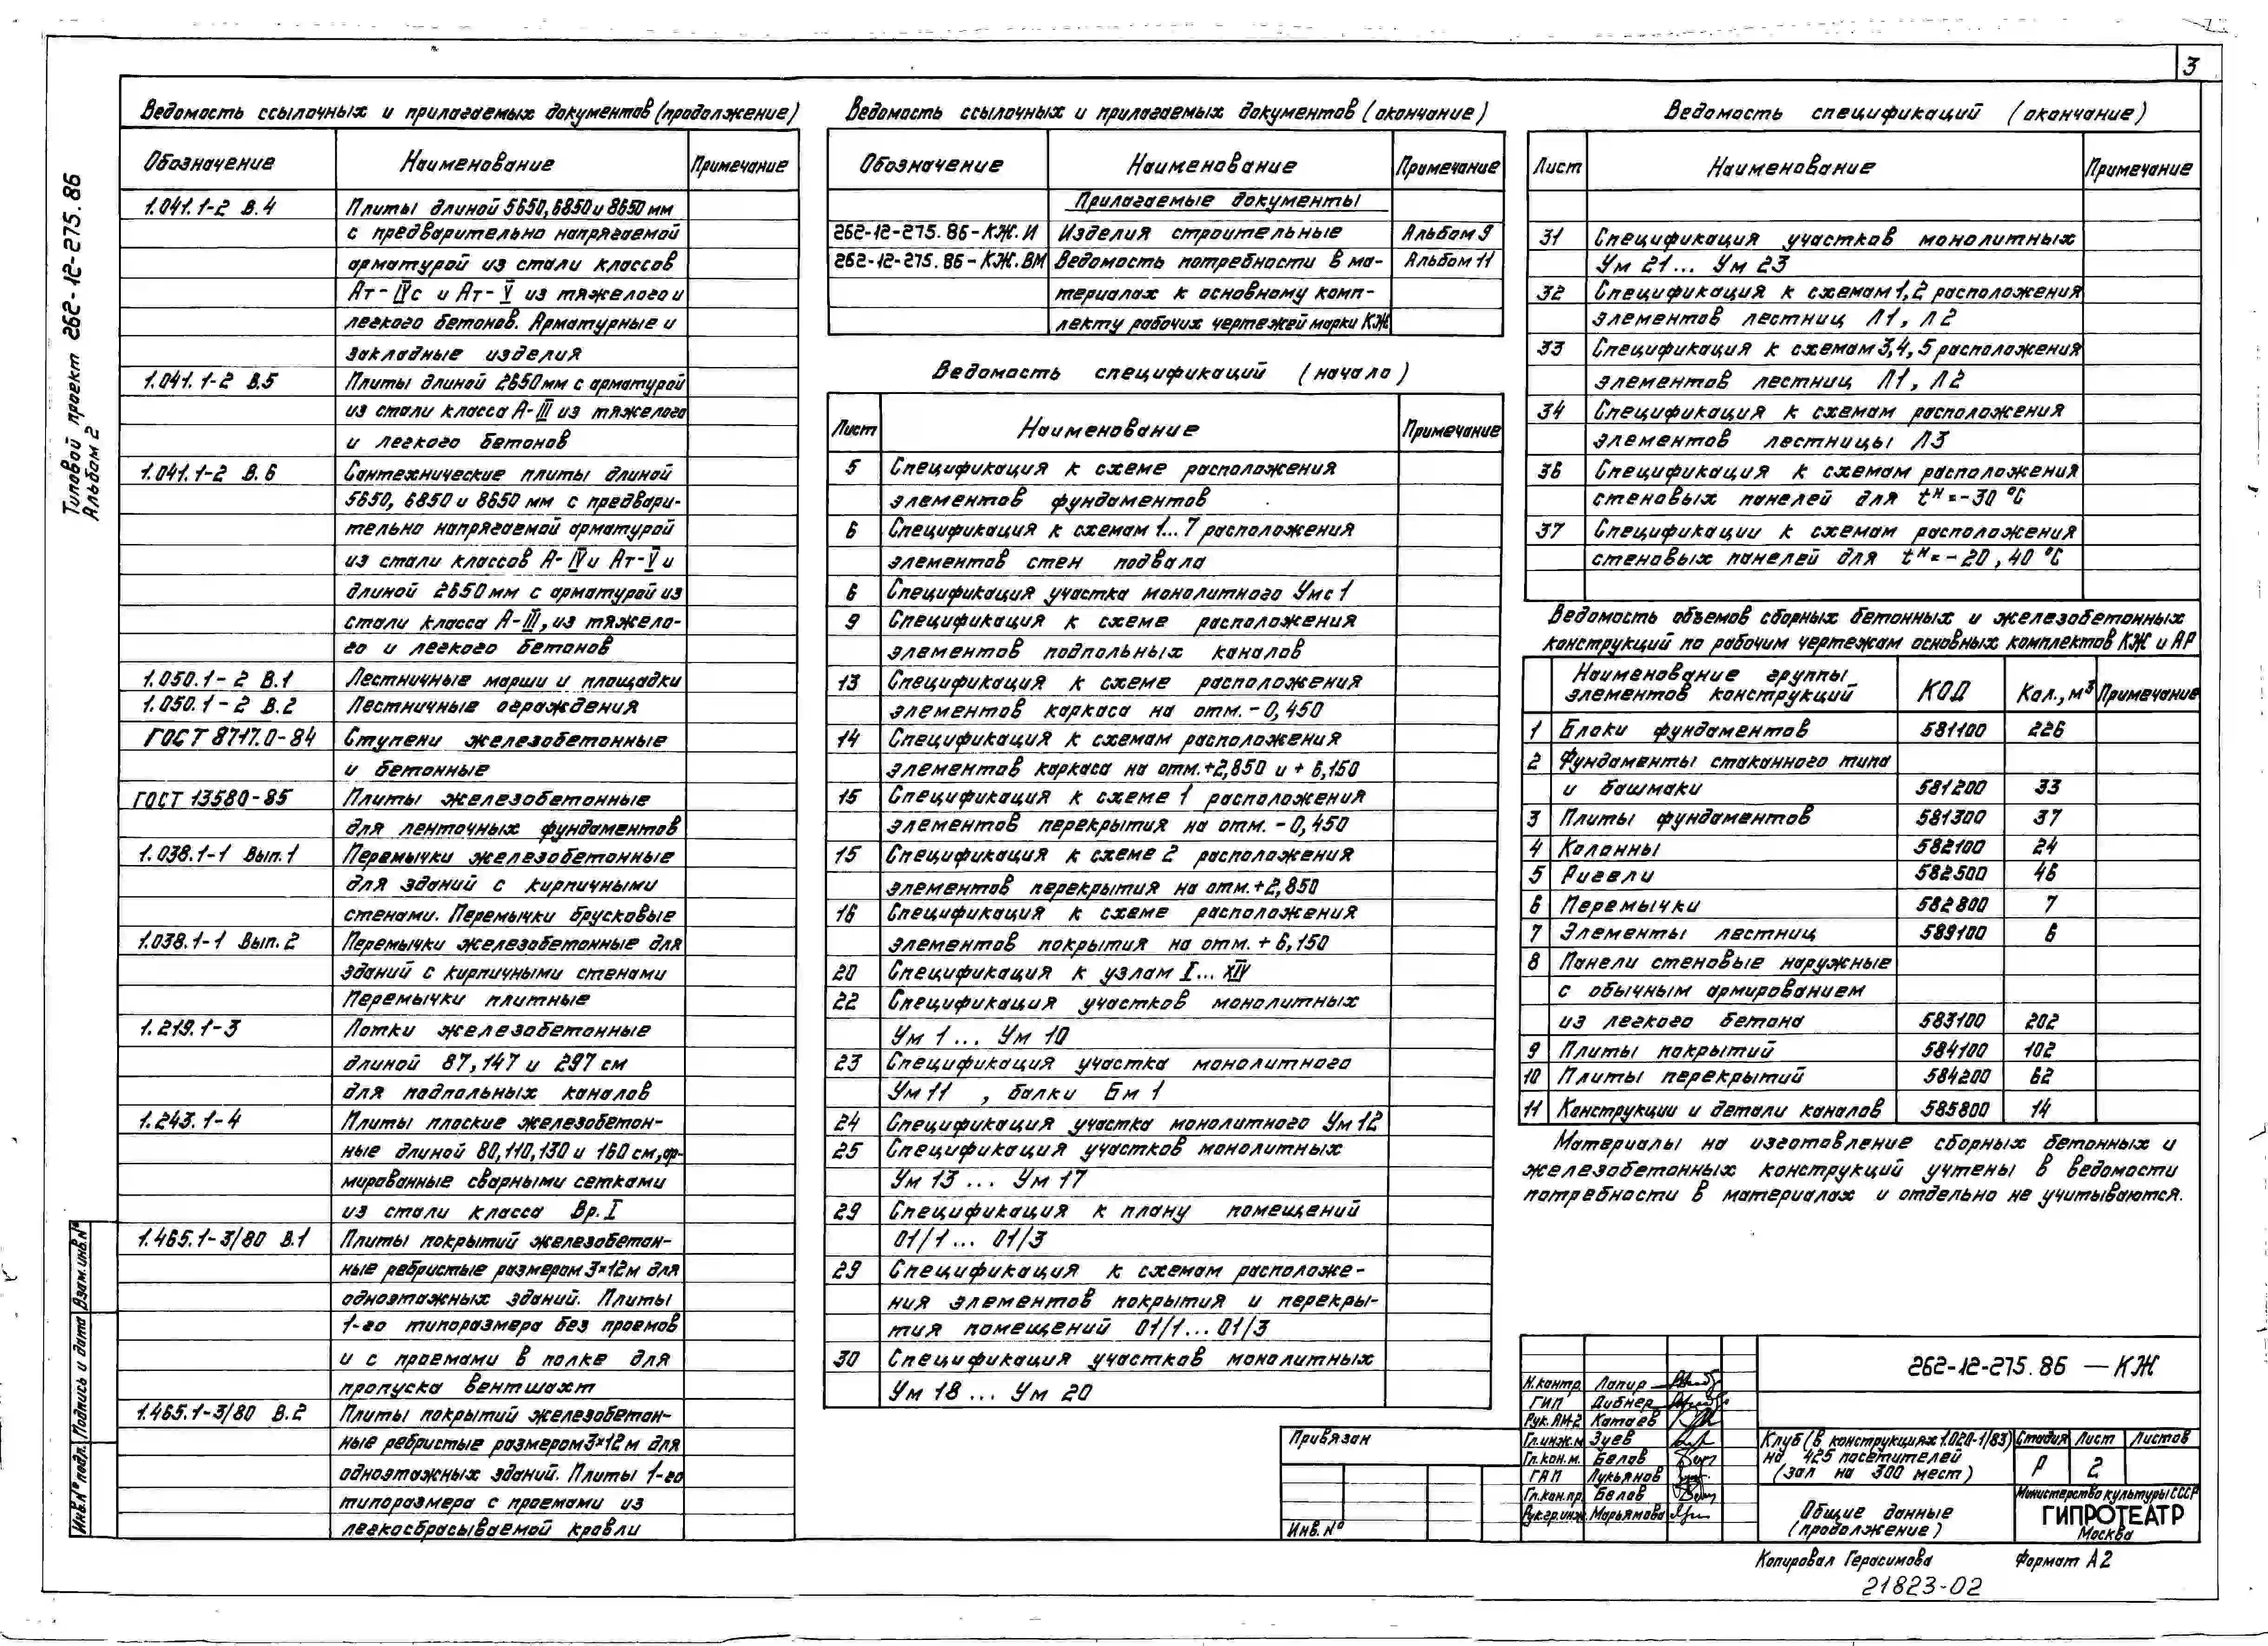 3
Типовой проект 262-12-275.86
Альбом 2
Ведомость ссылочных и прилагаемых документов (продолжение)
Обозначение Наименование Примечание
1.041.1-2 В.4 Плиты длиной 5650, 6850 и 8650 мм
с предварительно напрягаемой
арматурой из стали классов
Ат-IVс и Ат-V из тяжелого и
легкого бетонов. Арматурные и
закладные изделия
1.041.1-2 В.5 Плиты длиной 2650 мм с арматурой
из стали класса А-III из тяжелого
и легкого бетонов
1.041.1-2 В.6 Сантехнические плиты длиной
5650, 6850 и 8650 мм с предвари-
тельно напрягаемой арматурой
из стали классов А-IV и Ат-V и
длиной 2650 мм с арматурой из
стали класса А-III, из тяжело-
го и легкого бетонов
1.050.1-2 В.1 Лестничные марши и площадки
1.050.1-2 В.2 Лестничные ограждения
ГОСТ 8717.0-84 Ступени железобетонные
и бетонные
ГОСТ 13580-85 Плиты железобетонные
для ленточных фундаментов
1.038.1-1 Вып.1 Перемычки железобетонные
для зданий с кирпичными
стенами. Перемычки брусковые
1.038.1-1 Вып.2 Перемычки железобетонные для
зданий с кирпичными стенами
Перемычки плитные
1.219.1-3 Лотки железобетонные
длиной 87, 147 и 297 см
для подпольных каналов
1.243.1-4 Плиты плоские железобетон-
ные длиной 80, 110, 130 и 160 см, ар-
мированные сварными сетками
из стали класса Вр.I
1.465.1-3/80 В.1 Плиты покрытий железобетон-
ные ребристые размером 3×12м для
одноэтажных зданий. Плиты
1-го типоразмера без проемов
и с проемами в полке для
пропуска вентшахт
1.465.1-3/80 В.2 Плиты покрытий железобетон-
ные ребристые размером 3×12 м для
одноэтажных зданий. Плиты 1-го
типоразмера с проемами из
легкосбрасываемой кровли
Ведомость ссылочных и прилагаемых документов (окончание)
Обозначение Наименование Примечание
Прилагаемые документы
262-12-275.86-КЖ.И Изделия строительные Альбом 9
262-12-275.86-КЖ.ВМ Ведомость потребности в ма- Альбом 11
териалах к основному комп-
лекту рабочих чертежей марки КЖ
Ведомость спецификаций (начало)
Лист Наименование Примечание
5 Спецификация к схеме расположения
элементов фундаментов
6 Спецификация к схемам 1...7 расположения
элементов стен подвала
6 Спецификация участка монолитного Умс 1
9 Спецификация к схеме расположения
элементов подпольных каналов
13 Спецификация к схеме расположения
элементов каркаса на отм. -0,450
14 Спецификация к схемам расположения
элементов каркаса на отм. +2,850 и +6,150
15 Спецификация к схеме 1 расположения
элементов перекрытия на отм. -0,450
15 Спецификация к схеме 2 расположения
элементов перекрытия на отм. +2,850
16 Спецификация к схеме расположения
элементов покрытия на отм. +6,150
20 Спецификация к узлам I...XIV
22 Спецификация участков монолитных
Ум 1 ... Ум 10
23 Спецификация участка монолитного
Ум 11 , балки Бм 1
24 Спецификация участка монолитного Ум 12
25 Спецификация участков монолитных
Ум 13 ... Ум 17
29 Спецификация к плану помещений
01/1 ... 01/3
29 Спецификация к схемам расположе-
ния элементов покрытия и перекры-
тия помещений 01/1 ... 01/3
30 Спецификация участков монолитных
Ум 18 ... Ум 20
Ведомость спецификаций (окончание)
Лист Наименование Примечание
31 Спецификация участков монолитных
Ум 21 ... Ум 23
32 Спецификация к схемам 1,2 расположения
элементов лестниц Л1, Л2
33 Спецификация к схемам 3,4,5 расположения
элементов лестниц Л1, Л2
34 Спецификация к схемам расположения
элементов лестницы Л3
36 Спецификация к схемам расположения
стеновых панелей для tн=-30 °С
37 Спецификации к схемам расположения
стеновых панелей для tн=-20, 40 °С
Ведомость объемов сборных бетонных и железобетонных
конструкций по рабочим чертежам основных комплектов КЖ и АР
Наименование группы
элементов конструкций КОД Кол., м³ Примечание
1 Блоки фундаментов 581100 226
2 Фундаменты стаканного типа
и башмаки 581200 33
3 Плиты фундаментов 581300 37
4 Колонны 582100 24
5 Ригели 582500 46
6 Перемычки 582800 7
7 Элементы лестниц 589100 6
8 Панели стеновые наружные
с обычным армированием
из легкого бетона 583100 202
9 Плиты покрытий 584100 102
10 Плиты перекрытий 584200 62
11 Конструкции и детали каналов 585800 14
Материалы на изготовление сборных бетонных и
железобетонных конструкций учтены в ведомости
потребности в материалах и отдельно не учитываются.
Взам. инв. №
Подпись и дата
Инв. № подл.
Привязан
Инв. №
262-12-275.86 — КЖ
Н.контр. Лапир
ГИП Дибнер
Рук.АМ-2 Катаев
Гл.инж.м. Зуев
Гл.кон.м. Белов
ГАП Лукьянов
Гл.кон.пр. Белов
Рук.гр.инж. Марьямова
Клуб (в конструкциях 1.020-1/83)
на 425 посетителей
(зал на 300 мест)
Стадия Лист Листов
Р 2
Общие данные
(продолжение)
Министерство культуры СССР
ГИПРОТЕАТР
Москва
Копировал Герасимова Формат А2
21823-02